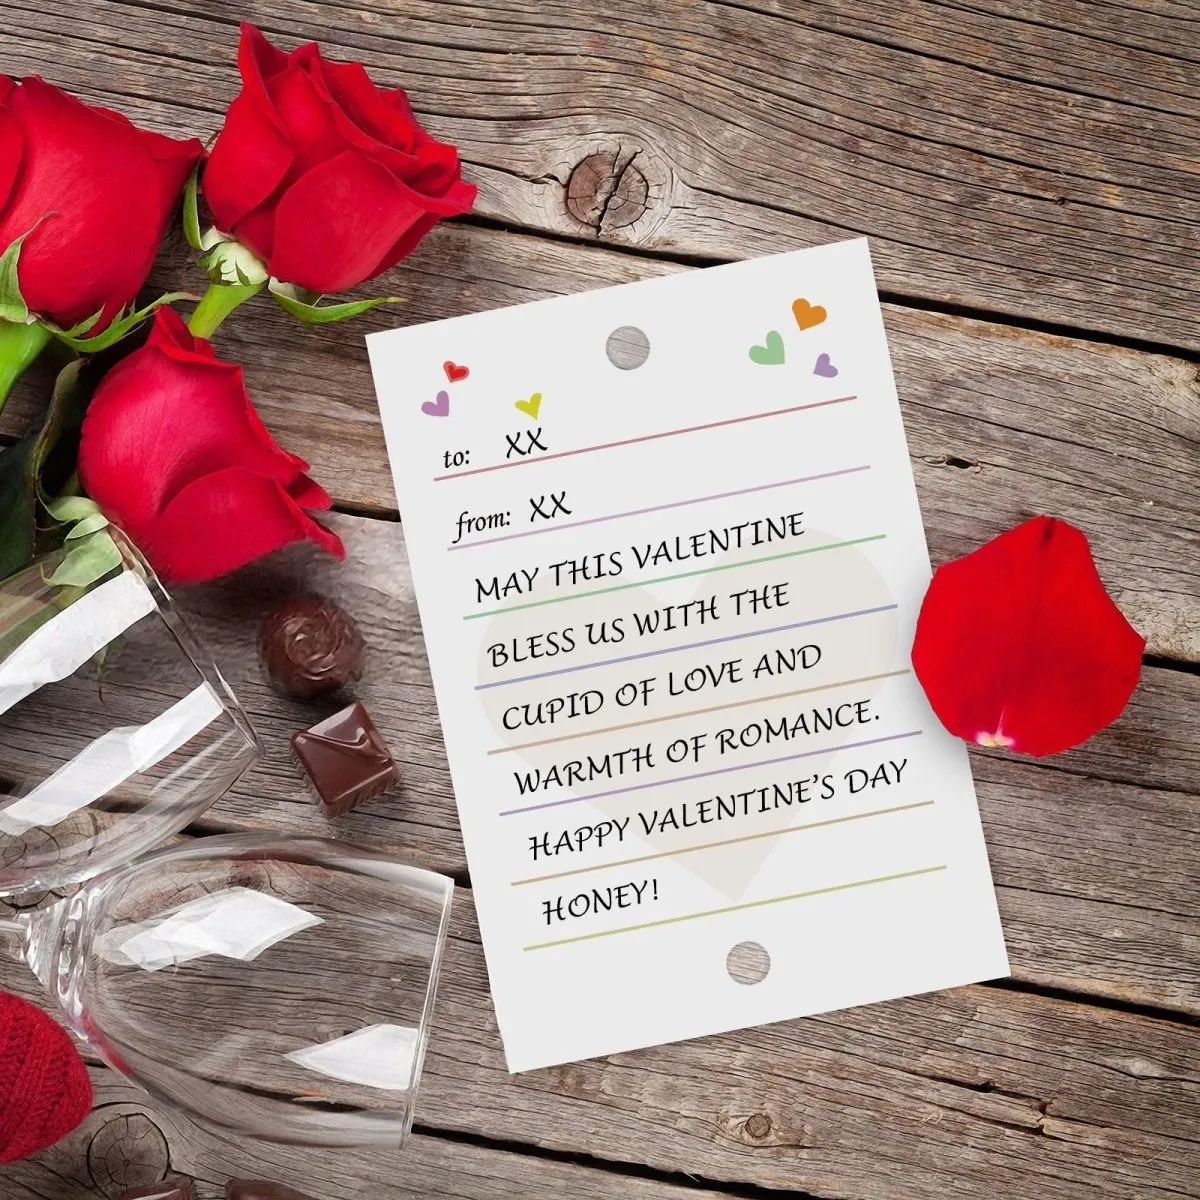 to: XX
from: XX
MAY THIS VALENTINE
BLESS US WITH THE
CUPID OF LOVE AND
WARMTH OF ROMANCE.
HAPPY VALENTINE'S DAY
HONEY!